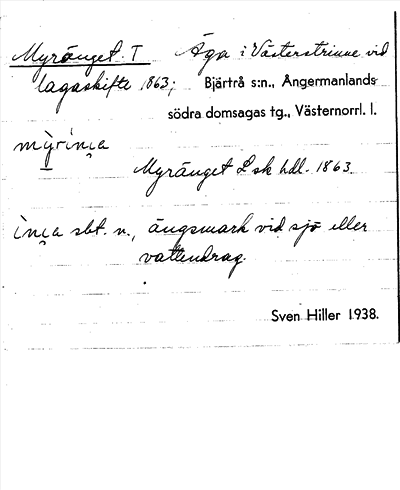 Myränget. T Äga i Västerstrinne vid
lagaskifte 1863; Bjärtrå s:n., Ångermanlands
södra domsagas tg., Västernorrl. l.
mỳ̱riṇa
Myränget L sk hdl. 1863.
iṇa sbt. n., ängsmark vid sjö eller
vattendrag.
Sven Hiller 1938.